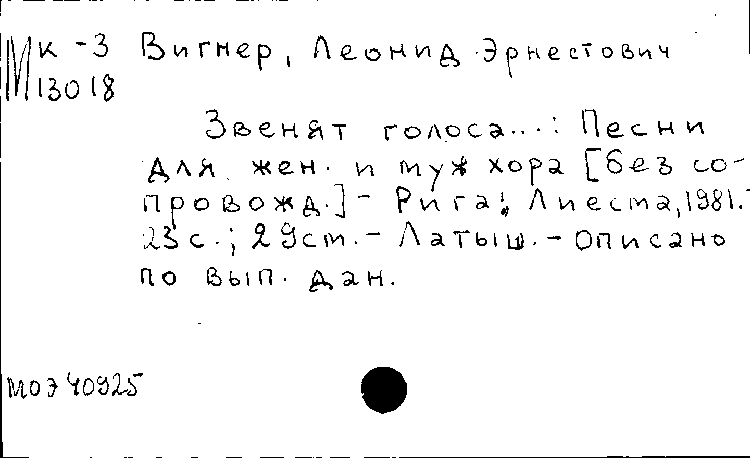 Мк-3 Вигнер, Леонид Эрнестович
13018
Звенят голоса...: Песни
для жен. и муж хора [без со-
провожд.] - Рига: Лиесма, 1981.-
23 с.; 29 cm. - Латыш. - Описано
по вып. дан.
МОЭ 40925